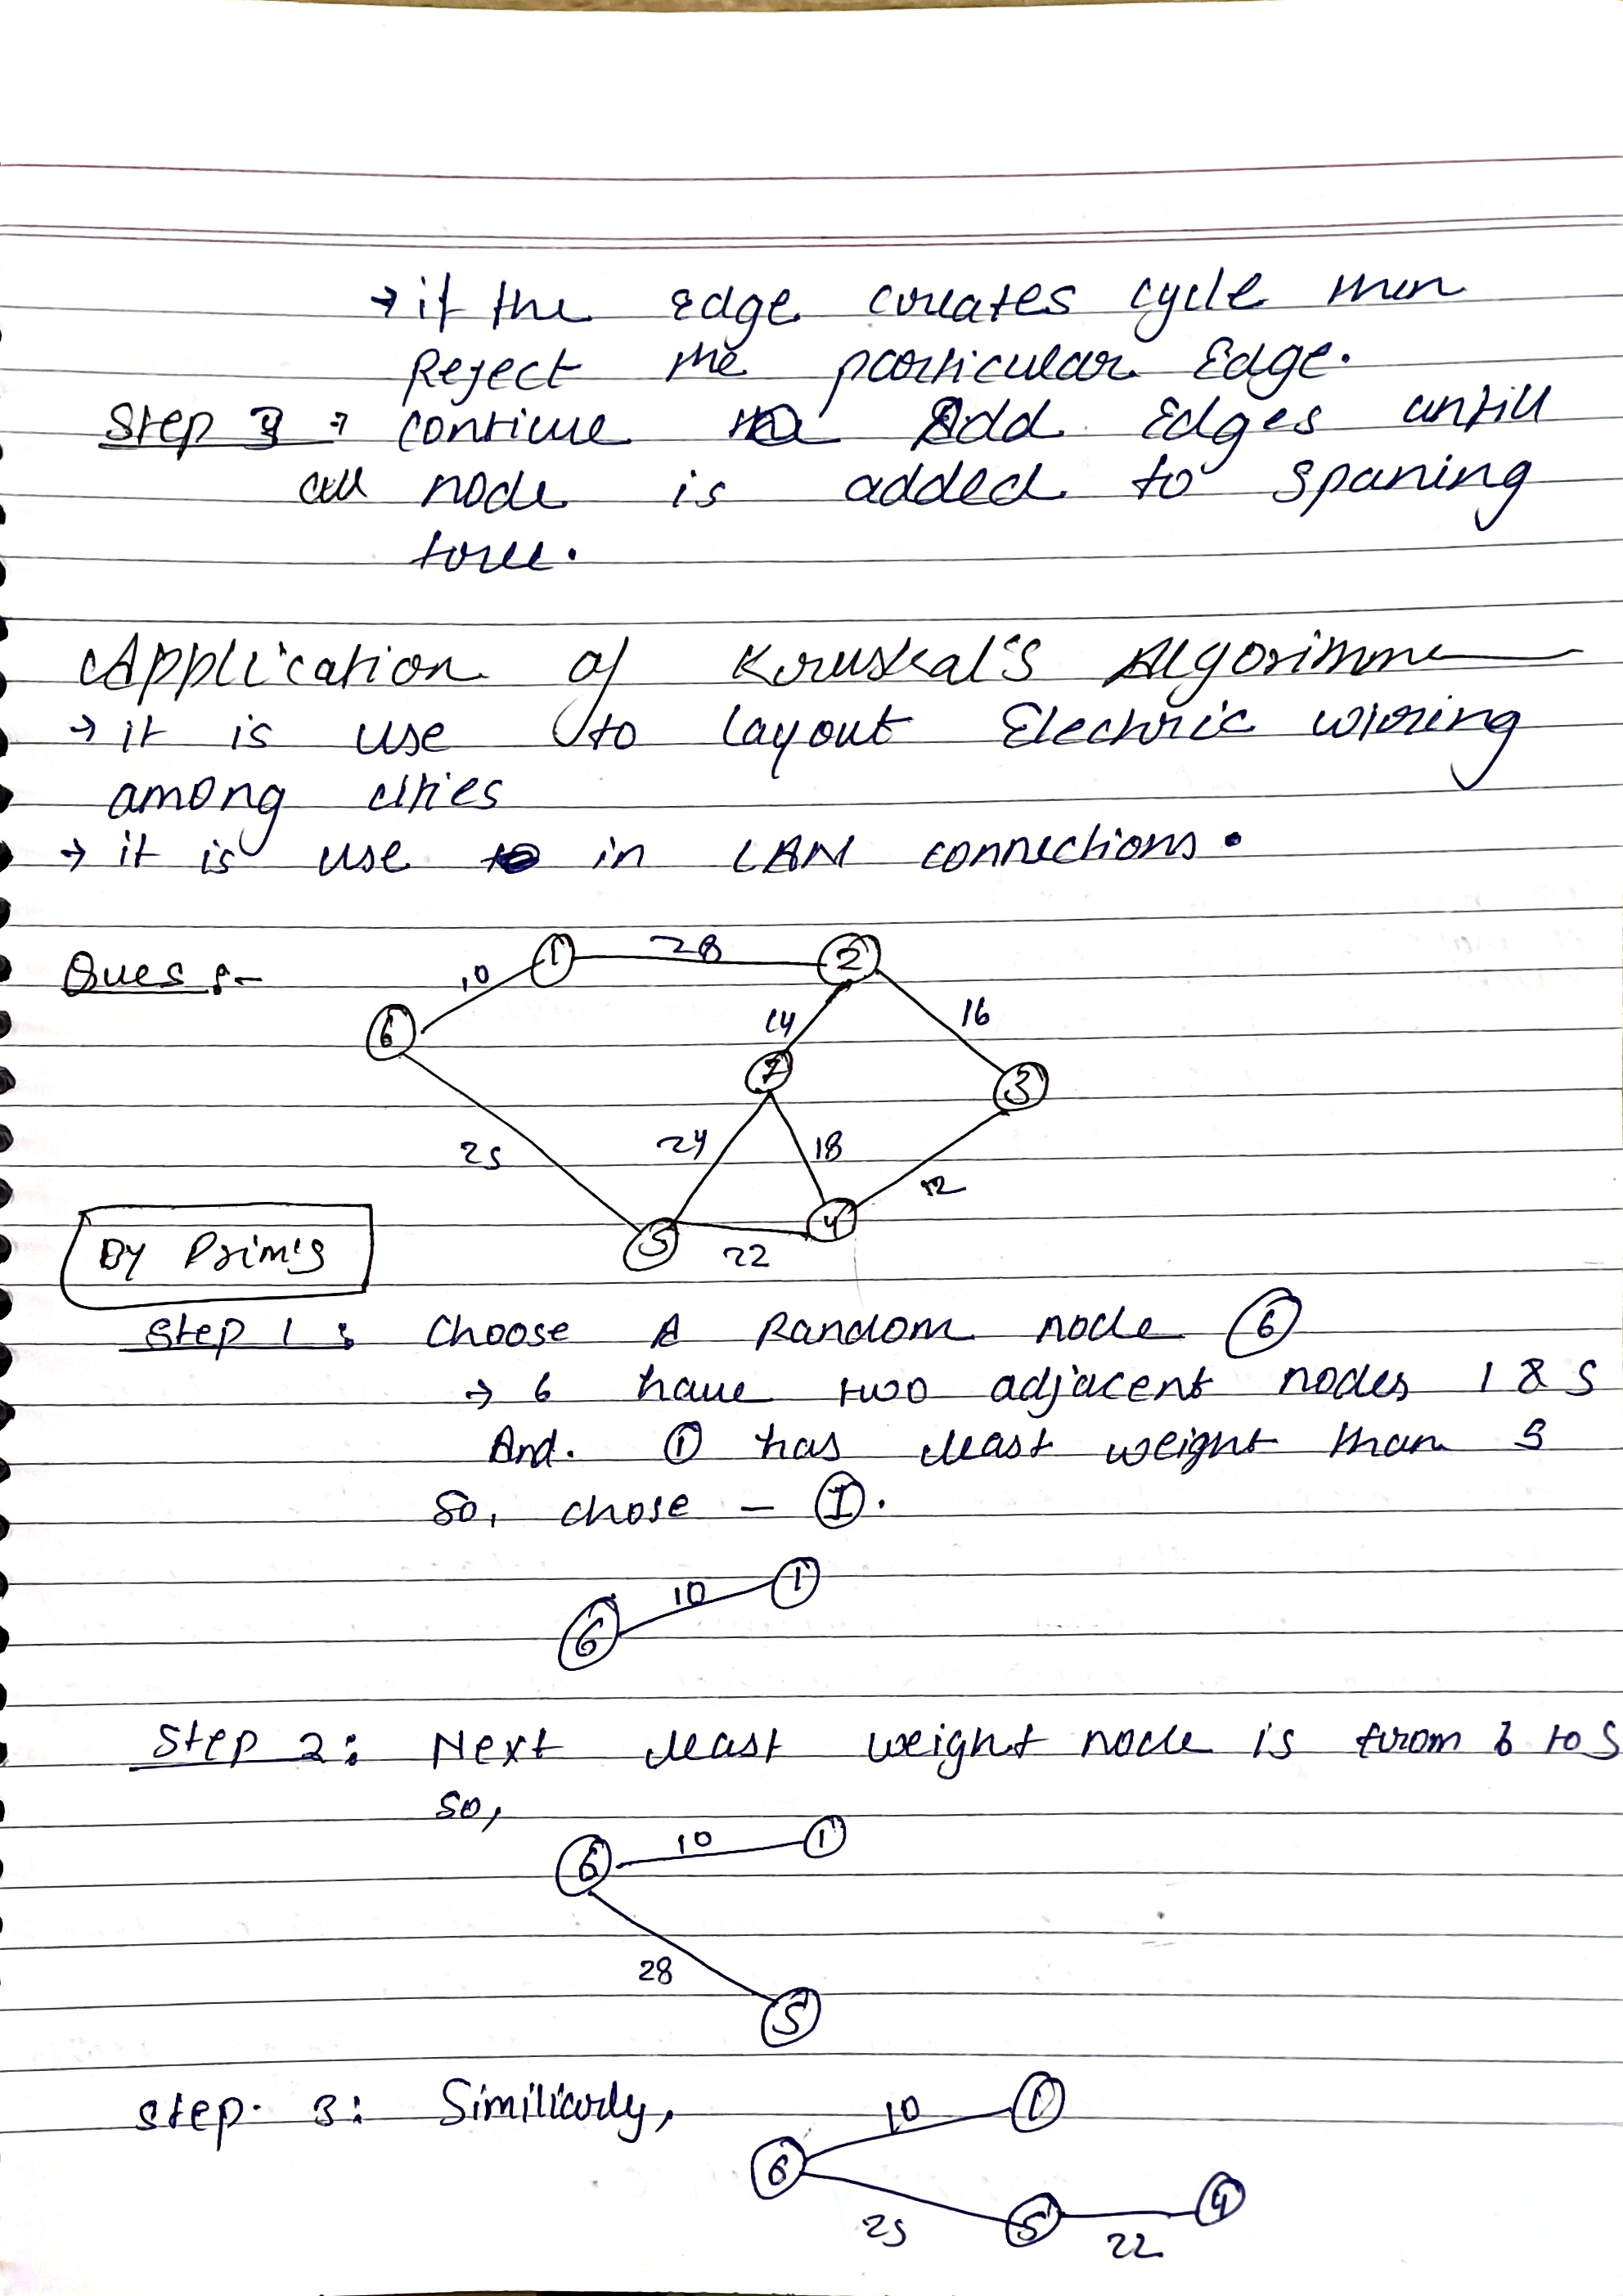 → if the edge creates cycle then
Reject the particular Edge.
Step 3 : continue to Add Edges untill
all node is added to spaning
tree.
Application of Kruskal's Algorithm
→ it is use to layout Electric wiring
among cities
→ it is use in LAN connections.
Ques :-
1 28 2
10
6
14 16
7
3
25 24 18
12
5 22 4
By Prim's
Step 1 : Choose A Random node 6
→ 6 have two adjacent nodes 1 & 5
And. 1 has least weight than 5
So, chose - 1.
6 10 1
Step 2: Next least weight node is from 6 to 5
so,
6 10 1
28
5
step. 3: Similiarly,
10 1
6
25 5 22 4